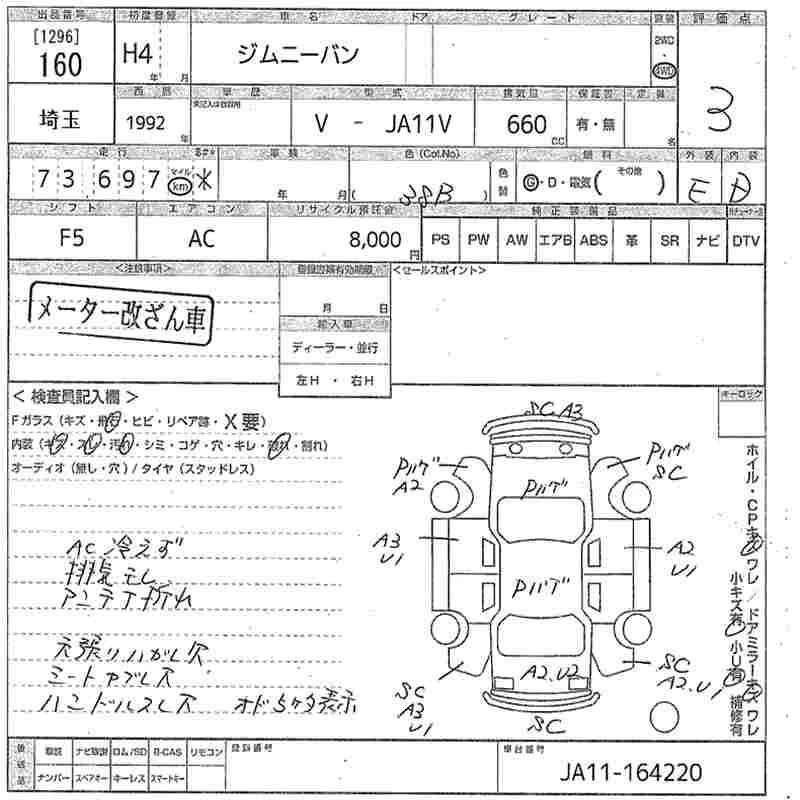 出品番号 初度登録 車名 ドア グレード 駆動 評価点
[1296]
160 H4 年 月 ジムニーバン 2WD ・ 4WD 3
西暦 車歴 型式 排気量 保証書 定員
埼玉 1992 年 未記入は自家用 V - JA11V 660 CC 有・無 名
走行 車検 色(Col.No) 燃料 外装 内装
73697 マイル km * 年 月 ( 38B ) 色替 G・D・電気( その他 ) E D
シフト エアコン リサイクル預託金 純正装備品
F5 AC 8,000 円 PS PW AW エアB ABS 革 SR ナビ DTV
<注意事項> <セールスポイント>
メーター改ざん車
月 日
輸入車
ディーラー・並行
左H ・ 右H
< 検査員記入欄 > キーロック
Fガラス (キズ・飛石・ヒビ・リペア跡・X要)
内装 (キズ・スレ・汚れ・シミ・コゲ・穴・キレ・破れ・割れ)
オーディオ (無し・穴) / タイヤ (スタッドレス)
AC 冷えず
排気モレ
アンテナ折れ
天張りハガレ穴
シートヤブレ穴
ハンドルスレ穴 オド5ケタ表示
SC A3
Pハゲ A2
Pハゲ SC
Pハゲ
A3 U1
A2 U1
Pハゲ
A2.U2
SC A3 U1
SC A2.U1
SC
ホイル・CPキズワレ / ドアミラーキズワレ
小キズ有 小U有 補修有
後送品 取説 ナビ取説 ロム/SD B-CAS リモコン 登録番号 車台番号
ナンバー スペアキー キーレス スマートキー JA11-164220